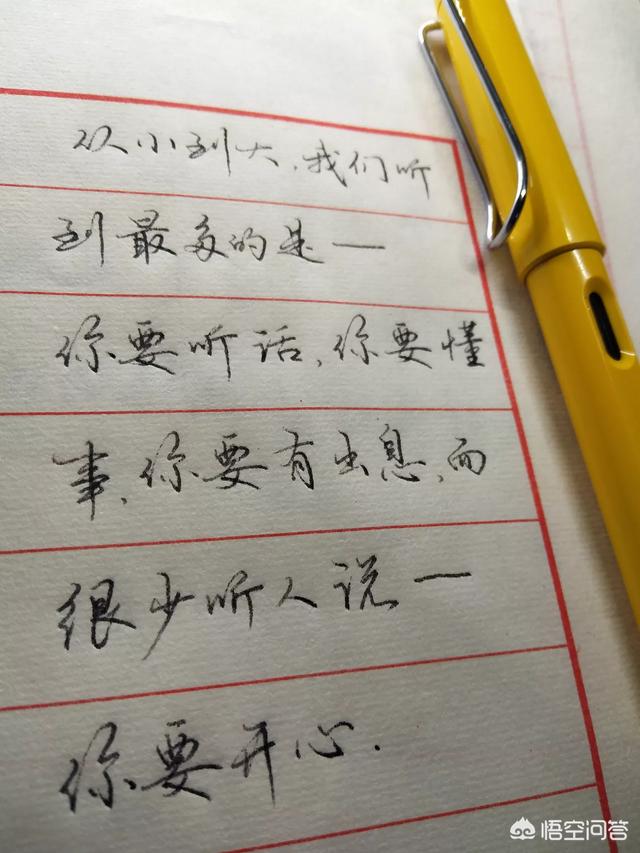 从小到大,我们听
到最多的是—
你要听话,你要懂
事,你要有出息,而
很少听人说—
你要开心.
悟空问答